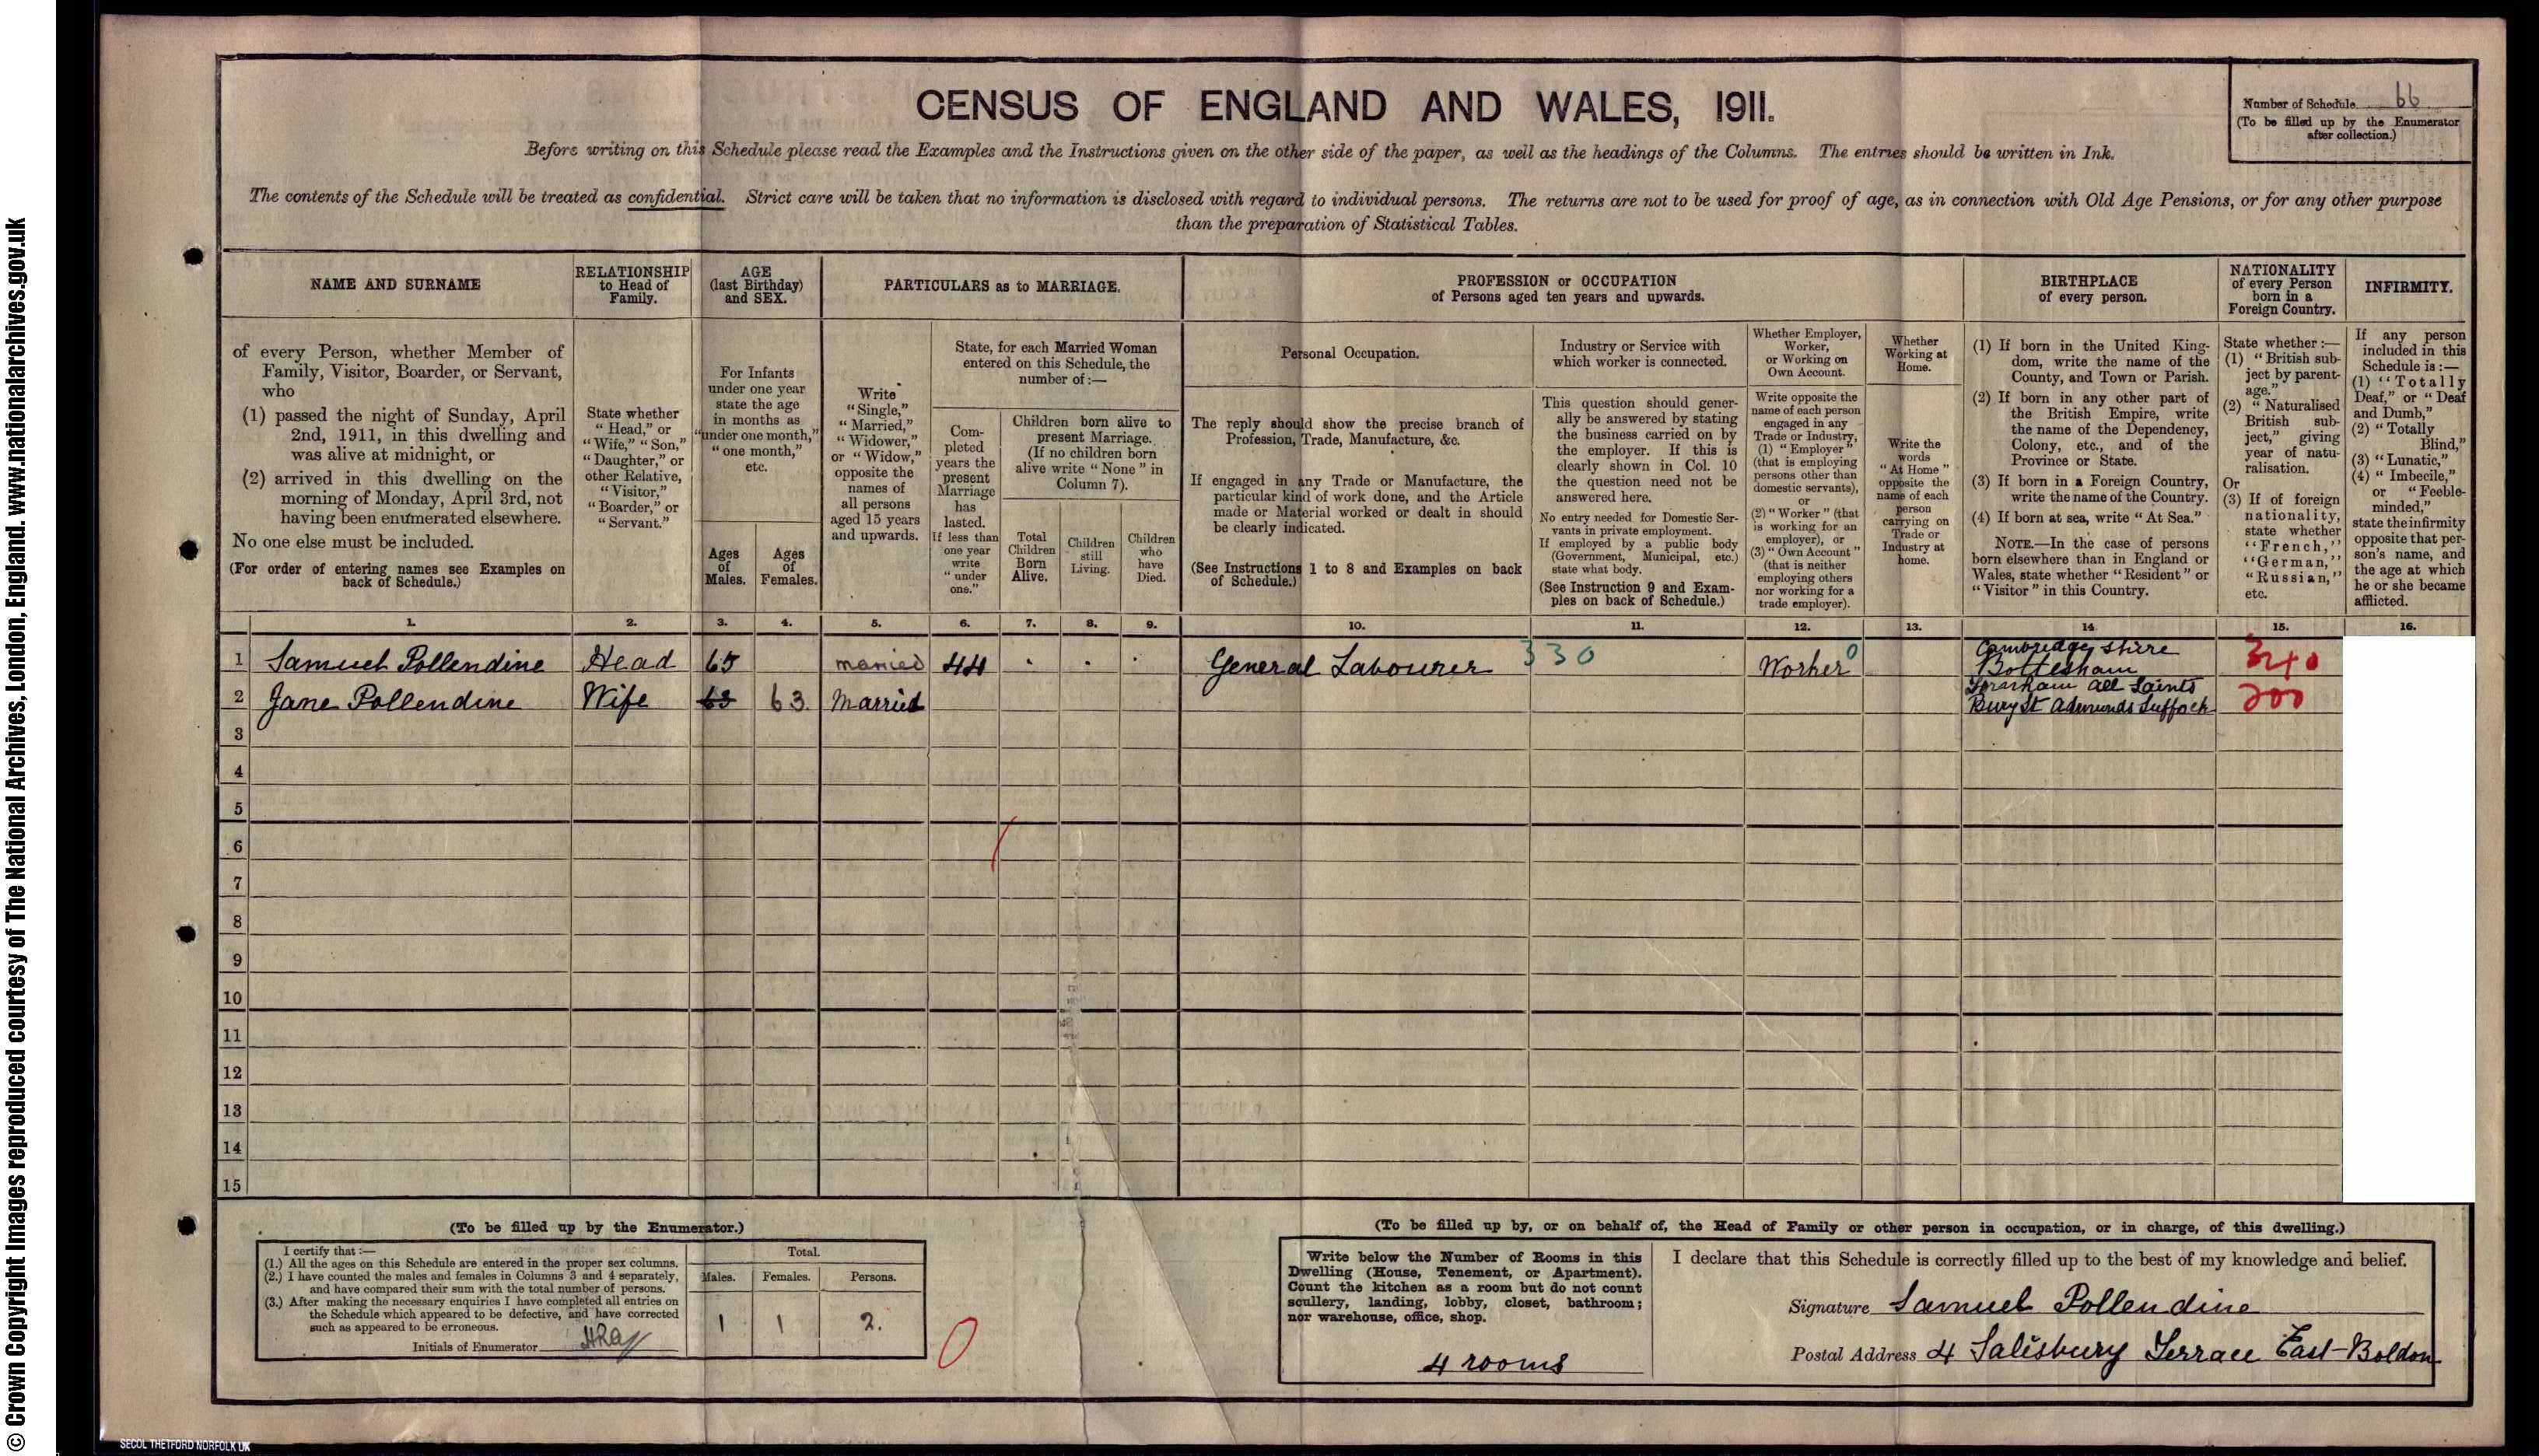 CENSUS OF ENGLAND AND WALES, 1911.
Number of Schedule 66
(To be filled up by the Enumerator
after collection.)
Before writing on this Schedule please read the Examples and the Instructions given on the other side of the paper, as well as the headings of the Columns. The entries should be written in Ink.
The contents of the Schedule will be treated as confidential. Strict care will be taken that no information is disclosed with regard to individual persons. The returns are not to be used for proof of age, as in connection with Old Age Pensions, or for any other purpose
than the preparation of Statistical Tables.
NAME AND SURNAME
of every Person, whether Member of
Family, Visitor, Boarder, or Servant,
who
(1) passed the night of Sunday, April
2nd, 1911, in this dwelling and
was alive at midnight, or
(2) arrived in this dwelling on the
morning of Monday, April 3rd, not
having been enumerated elsewhere.
No one else must be included.
(For order of entering names see Examples on
back of Schedule.)
RELATIONSHIP
to Head of
Family.
State whether
"Head," or
"Wife," "Son,"
"Daughter," or
other Relative,
"Visitor,"
"Boarder," or
"Servant."
AGE
(last Birthday)
and SEX.
For Infants
under one year
state the age
in months as
"under one month,"
"one month,"
etc.
Ages
of
Males.
Ages
of
Females.
PARTICULARS as to MARRIAGE.
Write
"Single,"
"Married,"
"Widower,"
or "Widow,"
opposite the
names of
all persons
aged 15 years
and upwards.
State, for each Married Woman
entered on this Schedule, the
number of:—
Com-
pleted
years the
present
Marriage
has
lasted.
If less than
one year
write
"under
one."
Children born alive to
present Marriage.
(If no children born
alive write "None" in
Column 7).
Total
Children
Born
Alive.
Children
still
Living.
Children
who
have
Died.
PROFESSION or OCCUPATION
of Persons aged ten years and upwards.
Personal Occupation.
The reply should show the precise branch of
Profession, Trade, Manufacture, &c.
If engaged in any Trade or Manufacture, the
particular kind of work done, and the Article
made or Material worked or dealt in should
be clearly indicated.
(See Instructions 1 to 8 and Examples on back
of Schedule.)
Industry or Service with
which worker is connected.
This question should gener-
ally be answered by stating
the business carried on by
the employer. If this is
clearly shown in Col. 10
the question need not be
answered here.
No entry needed for Domestic Ser-
vants in private employment.
If employed by a public body
(Government, Municipal, etc.)
state what body.
(See Instruction 9 and Exam-
ples on back of Schedule.)
Whether Employer,
Worker,
or Working on
Own Account.
Write opposite the
name of each person
engaged in any
Trade or Industry,
(1) "Employer"
(that is employing
persons other than
domestic servants),
or
(2) "Worker" (that
is working for an
employer), or
(3) "Own Account"
(that is neither
employing others
nor working for a
trade employer).
Whether
Working at
Home.
Write the
words
"At Home"
opposite the
name of each
person
carrying on
Trade or
Industry at
home.
BIRTHPLACE
of every person.
(1) If born in the United King-
dom, write the name of the
County, and Town or Parish.
(2) If born in any other part of
the British Empire, write
the name of the Dependency,
Colony, etc., and of the
Province or State.
(3) If born in a Foreign Country,
write the name of the Country.
(4) If born at sea, write "At Sea."
NOTE.—In the case of persons
born elsewhere than in England or
Wales, state whether "Resident" or
"Visitor" in this Country.
NATIONALITY
of every Person
born in a
Foreign Country.
State whether:—
(1) "British sub-
ject by parent-
age."
(2) "Naturalised
British sub-
ject," giving
year of natu-
ralisation.
Or
(3) If of foreign
nationality,
state whether
"French,"
"German,"
"Russian,"
etc.
INFIRMITY.
If any person
included in this
Schedule is:—
(1) "Totally
Deaf," or "Deaf
and Dumb,"
(2) "Totally
Blind,"
(3) "Lunatic,"
(4) "Imbecile,"
or "Feeble-
minded,"
state the infirmity
opposite that per-
son's name, and
the age at which
he or she became
afflicted.
1. 2. 3. 4. 5. 6. 7. 8. 9. 10. 11. 12. 13. 14. 15. 16.
1 Samuel Pollendine Head 65 married 44 General Labourer 330 Worker 0 Cambridgeshire
Bottesham 340
2 Jane Pollendine Wife 63 63 Married All Saints
Bury St Admunds Suffock 200
3
4
5
6
7
8
9
10
11
12
13
14
15
(To be filled up by the Enumerator.)
I certify that:—
(1.) All the ages on this Schedule are entered in the proper sex columns.
(2.) I have counted the males and females in Columns 3 and 4 separately,
and have compared their sum with the total number of persons.
(3.) After making the necessary enquiries I have completed all entries on
the Schedule which appeared to be defective, and have corrected
such as appeared to be erroneous.
Initials of Enumerator
Total.
Males. Females. Persons.
1 1 2.
0
(To be filled up by, or on behalf of, the Head of Family or other person in occupation, or in charge, of this dwelling.)
Write below the Number of Rooms in this
Dwelling (House, Tenement, or Apartment).
Count the kitchen as a room but do not count
scullery, landing, lobby, closet, bathroom;
nor warehouse, office, shop.
4 rooms
I declare that this Schedule is correctly filled up to the best of my knowledge and belief.
Signature Samuel Pollendine
Postal Address 4 Salisbury Terrace East-Boldon
© Crown Copyright Images reproduced courtesy of The National Archives, London, England. www.nationalarchives.gov.uk
SECOL THETFORD NORFOLK UK